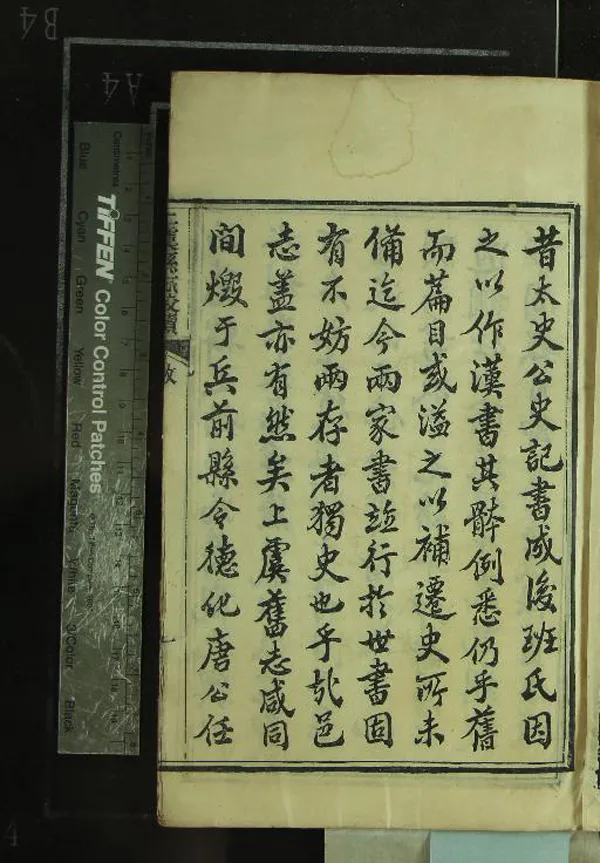 昔太史公史記書成後班氏因
之以作漢書其體例悉仍乎舊
而篇目或溢之以補遷史所未
備迄今兩家書竝行於世書固
有不妨兩存者獨史也乎哉邑
志蓋亦有然矣上虞舊志咸同
間燬于兵前縣令德化唐公任
TIFFEN Color Control Patches
Centimetres
Blue
Cyan
Green
Yellow
Red
Magenta
White
3/Color
Black
B4
A4
4